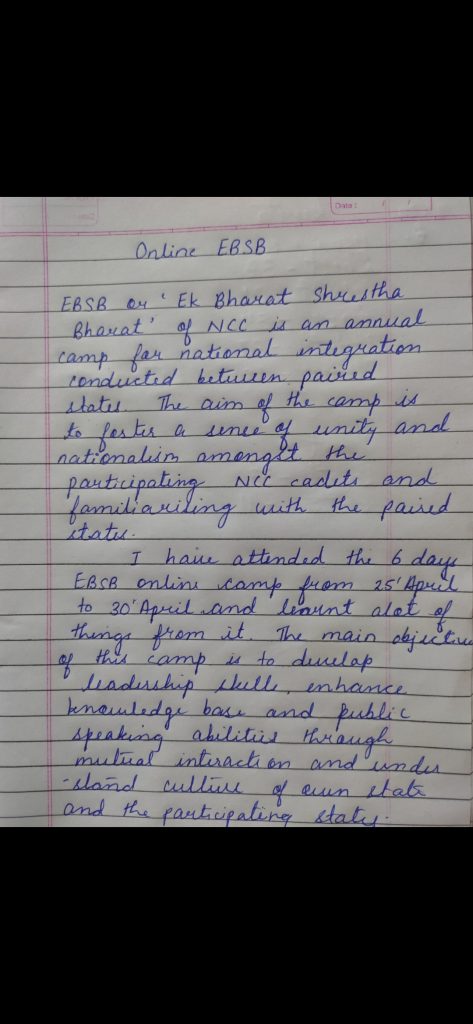 Date :
Online EBSB
EBSB or 'Ek Bharat Shrestha
Bharat' of NCC is an annual
camp for national integration
conducted between paired
states. The aim of the camp is
to foster a sense of unity and
nationalism amongst the
participating NCC cadets and
familiarising with the paired
states.
I have attended the 6 days
EBSB online camp from 25'April
to 30'April and learnt alot of
things from it. The main objective
of this camp is to develop
leadership skills, enhance
knowledge base and public
speaking abilities through
mutual interaction and under
-stand culture of own state
and the participating states.